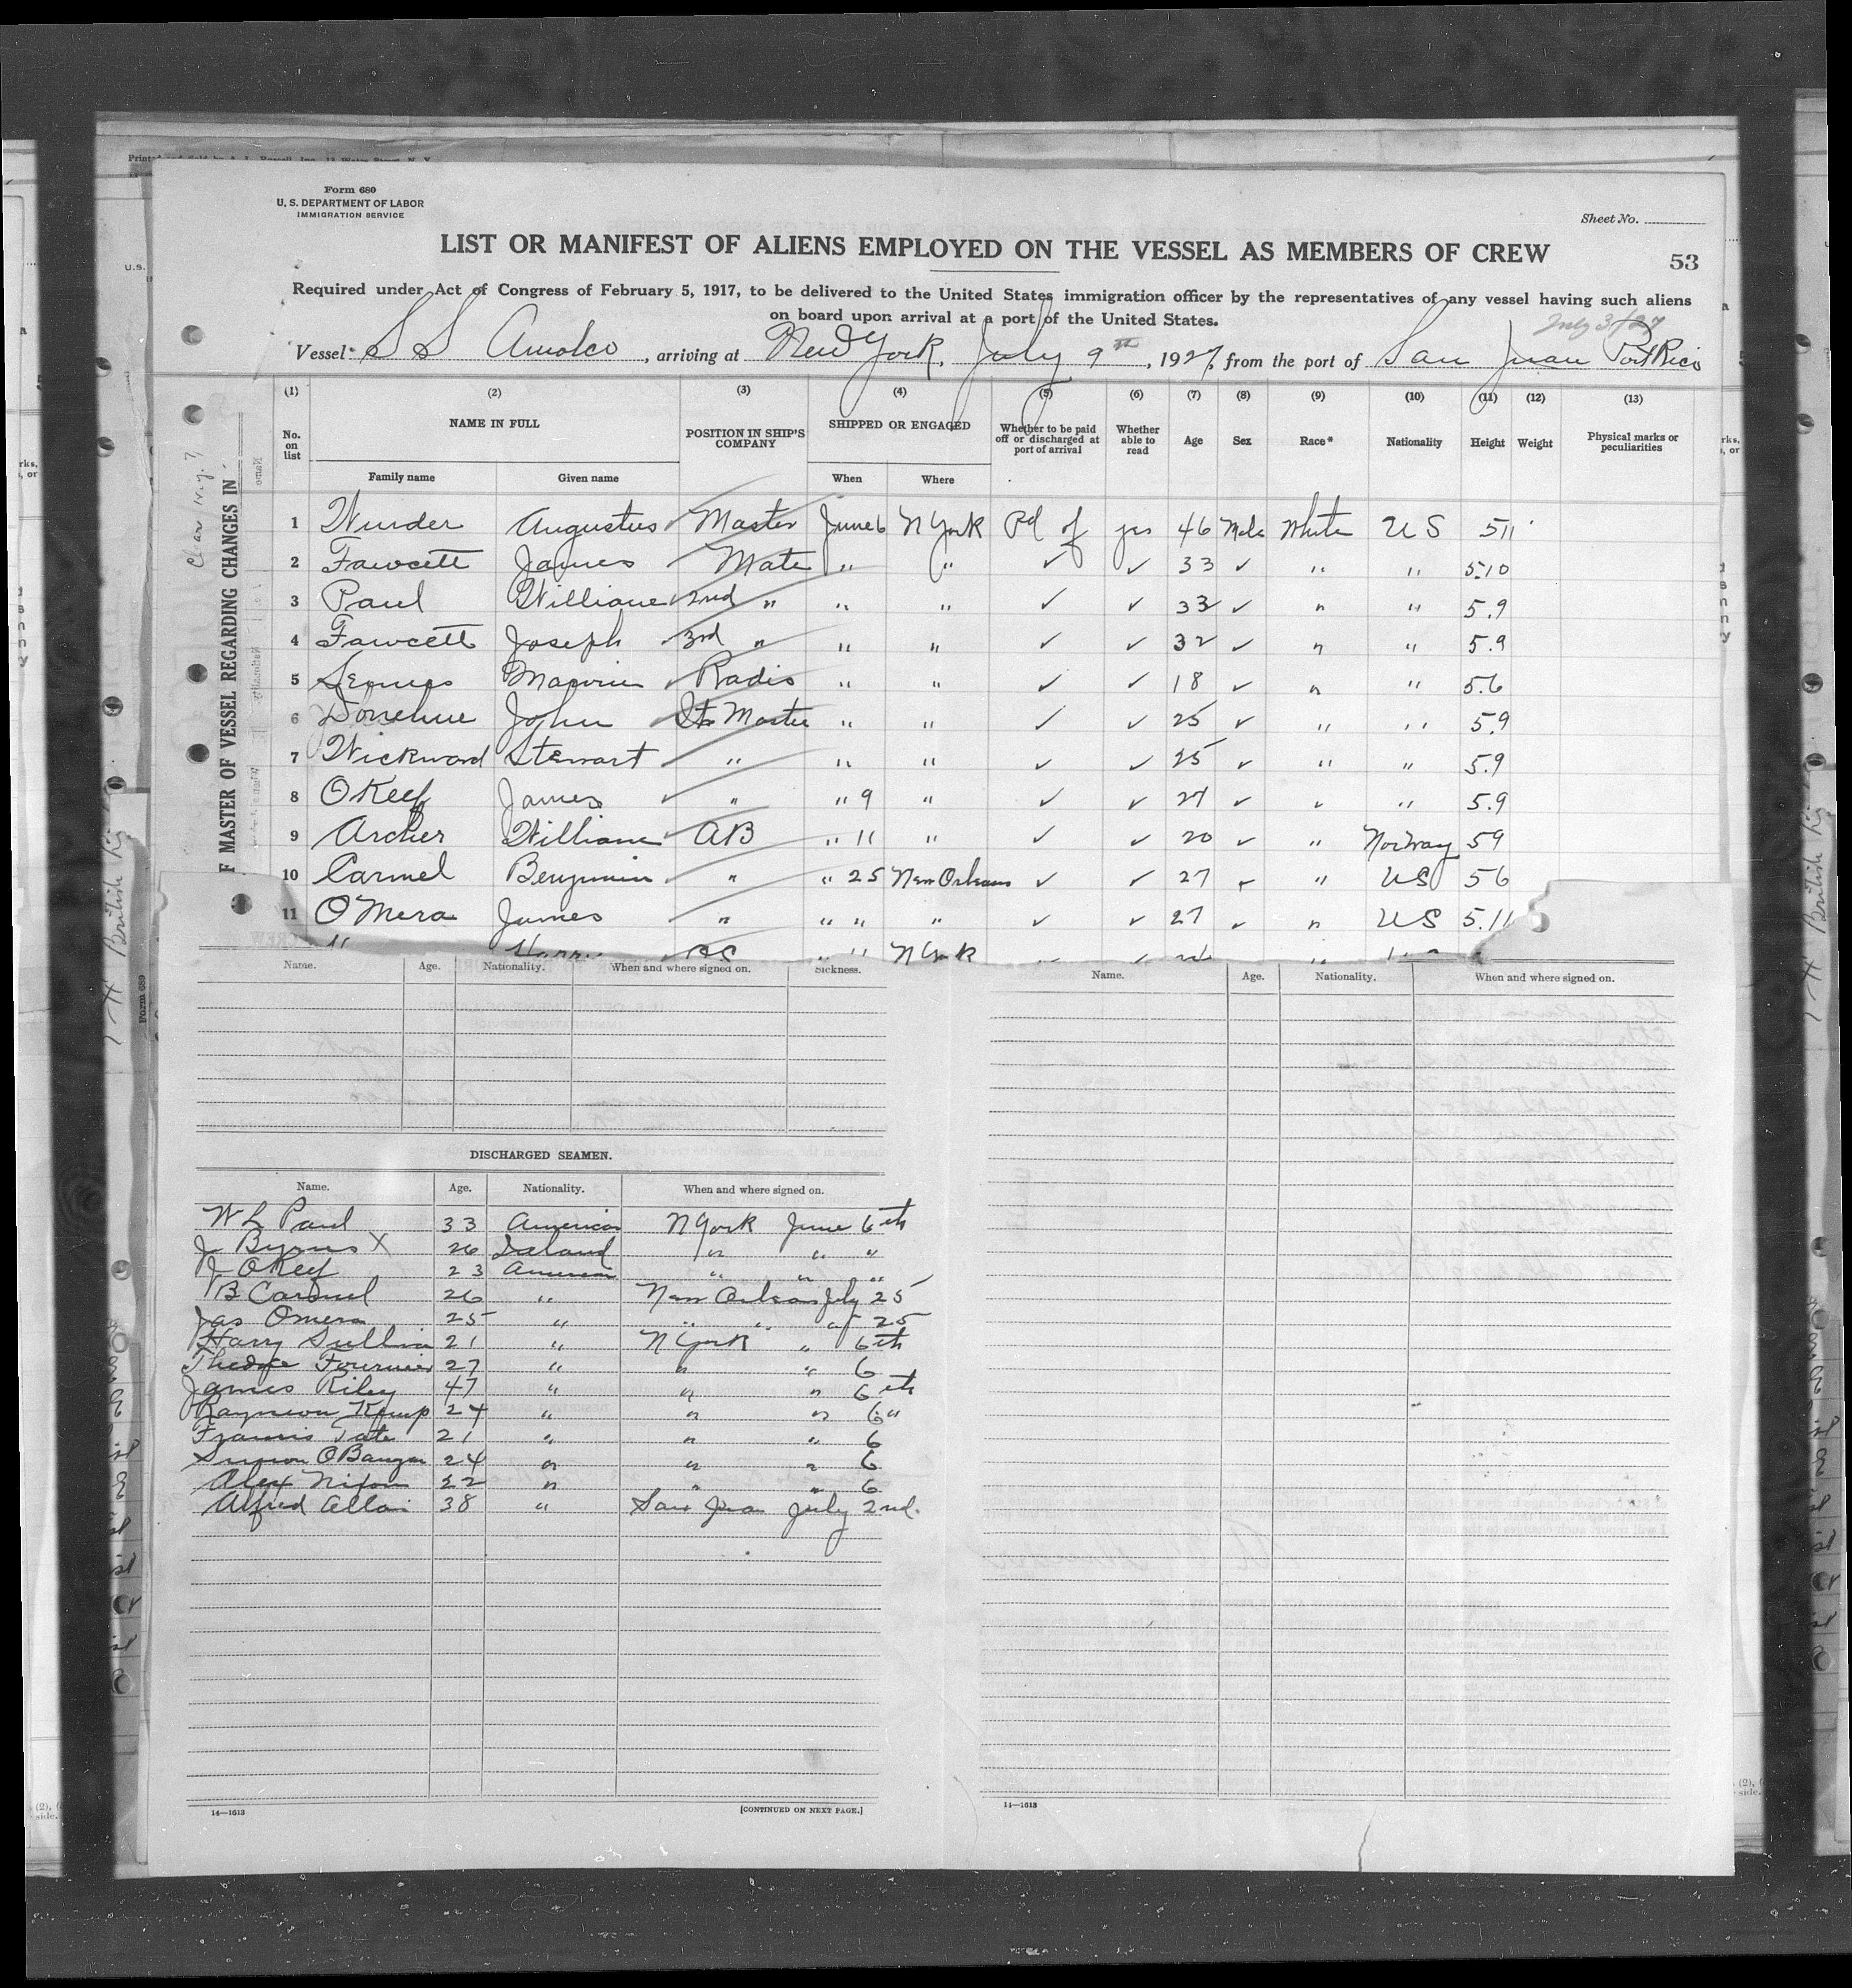 Form 680
U. S. DEPARTMENT OF LABOR
IMMIGRATION SERVICE
Sheet No.
LIST OR MANIFEST OF ALIENS EMPLOYED ON THE VESSEL AS MEMBERS OF CREW
53
Required under Act of Congress of February 5, 1917, to be delivered to the United States immigration officer by the representatives of any vessel having such aliens
on board upon arrival at a port of the United States.
July 3/27
Vessel S S Amolco, arriving at New York, July 9th, 1927, from the port of San Juan Port Rico
(1) (2) (3) (4) (5) (6) (7) (8) (9) (10) (11) (12) (13)
No. on list NAME IN FULL Family name Given name POSITION IN SHIP'S COMPANY SHIPPED OR ENGAGED When Where Whether to be paid off or discharged at port of arrival Whether able to read Age Sex Race* Nationality Height Weight Physical marks or peculiarities
1 Wunder Augustus Master June 6 N York Pd of yes 46 Male White U S 511
2 Fawcett James Mate " " ✓ ✓ 33 ✓ " " 5.10
3 Paul William 2nd " " " ✓ ✓ 33 ✓ " " 5.9
4 Fawcett Joseph 3rd " " " ✓ ✓ 32 ✓ " " 5.9
5 Radio " " ✓ ✓ 18 ✓ " " 5.6
6 Donehue John Master " " ✓ ✓ 25 ✓ " " 5.9
7 Wickward Stewart " " " ✓ ✓ 25 ✓ " " 5.9
8 OKeef James " " 9 " ✓ ✓ 27 ✓ " " 5.9
9 Archer William AB " 11 " ✓ ✓ 20 ✓ " Norway 59
10 Carmel Benjamin " " 25 New Orleans ✓ ✓ 27 ✓ " US 56
11 O'Mera James " " " " ✓ ✓ 27 ✓ " US 5.11
N York
F MASTER OF VESSEL REGARDING CHANGES IN
Name. Age. Nationality. When and where signed on. Sickness.
Name. Age. Nationality. When and where signed on.
DISCHARGED SEAMEN.
Name. Age. Nationality. When and where signed on.
W L Paul 33 American N York June 6th
J Byrnes X 26 Ireland " " "
J OKeef 23 American " " "
B Carmel 26 " New Orleans July 25
Jas Omera 25 " " " " 25
Harry Sullivan 21 " N York " 6th
Fournier 27 " " " 6
James Riley 47 " " " 6th
Kemp 24 " " " 6"
Francis Tate 21 " " " 6
24 " " " 6
Alex Nixon 22 " " " 6
Alfred Allan 38 " San Juan July 2nd.
14—1613
[CONTINUED ON NEXT PAGE.]
14—1613